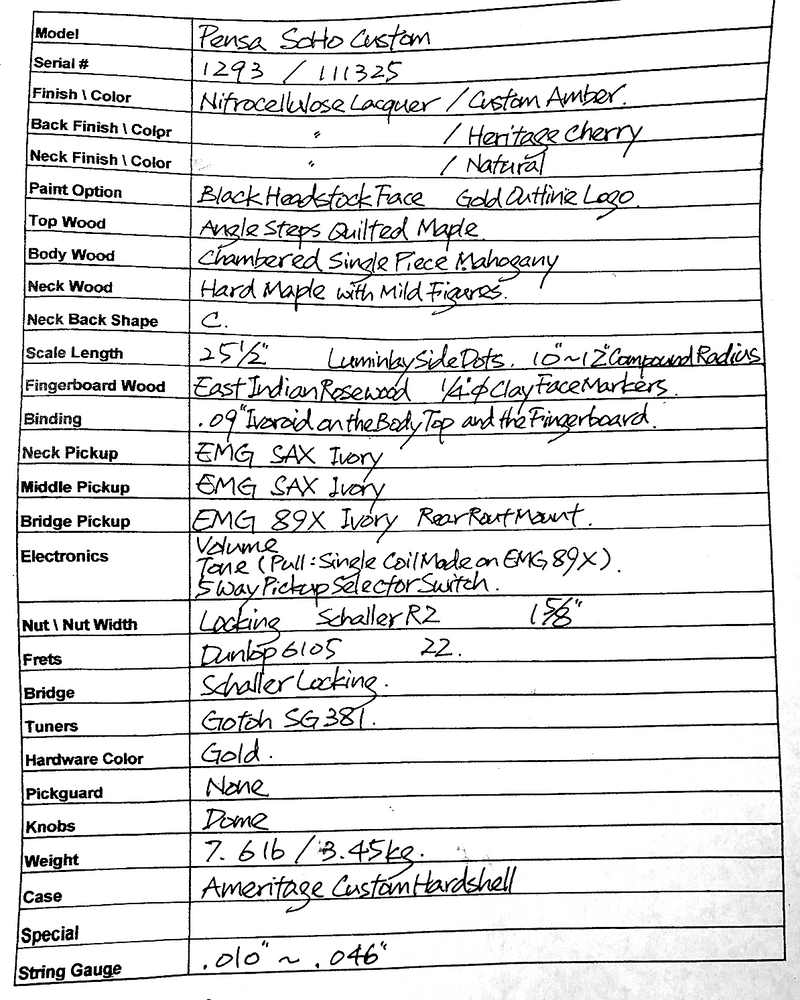 Model Pensa SoHo Custom
Serial # 1293 / 111325
Finish \ Color Nitrocellulose Lacquer / Custom Amber.
Back Finish \ Colpr " / Heritage Cherry
Neck Finish \ Color " / Natural
Paint Option Black Headstock Face Gold Outline Logo.
Top Wood Angle Steps Quilted Maple.
Body Wood Chambered Single Piece Mahogany
Neck Wood Hard Maple with Mild Figures.
Neck Back Shape C.
Scale Length 25 1/2" Luminlay Side Dots. 10"~12" Compound Radius
Fingerboard Wood East Indian Rosewood 1/4"φ Clay Face Markers.
Binding .09" Ivoroid on the Body Top and the Fingerboard.
Neck Pickup EMG SAX Ivory
Middle Pickup EMG SAX Ivory
Bridge Pickup EMG 89X Ivory Rear Rout Mount.
Electronics Volume
Tone (Pull : Single Coil Mode on EMG 89X).
5 Way Pickup Selector Switch.
Nut \ Nut Width Locking Schaller R2 1 5/8"
Frets Dunlop 6105 22.
Bridge Schaller Locking.
Tuners Gotoh SG 381.
Hardware Color Gold.
Pickguard None
Knobs Dome
Weight 7.6 lb / 3.45 kg.
Case Ameritage Custom Hardshell
Special
String Gauge .010" ~ .046"